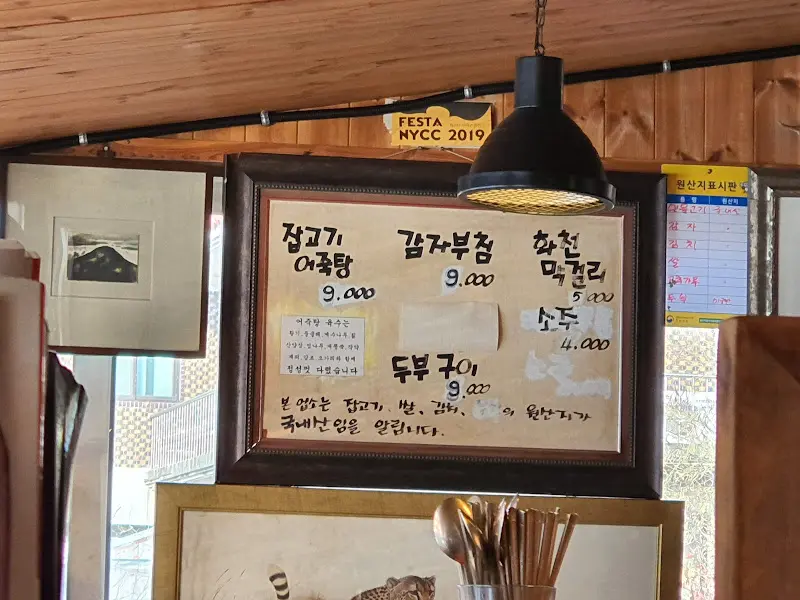 FESTA
NYCC 2019
원산지표시판
품명 원산지
감자
김치
쌀
잡고기
어죽탕
9.000
감자부침
9.000
화천
막걸리
5.000
소주
4.000
어죽탕 육수는
정성껏 다렸습니다
두부구이
9.000
본 업소는 잡고기, 쌀, 김치, 의 원산지가
국내산임을 알립니다.